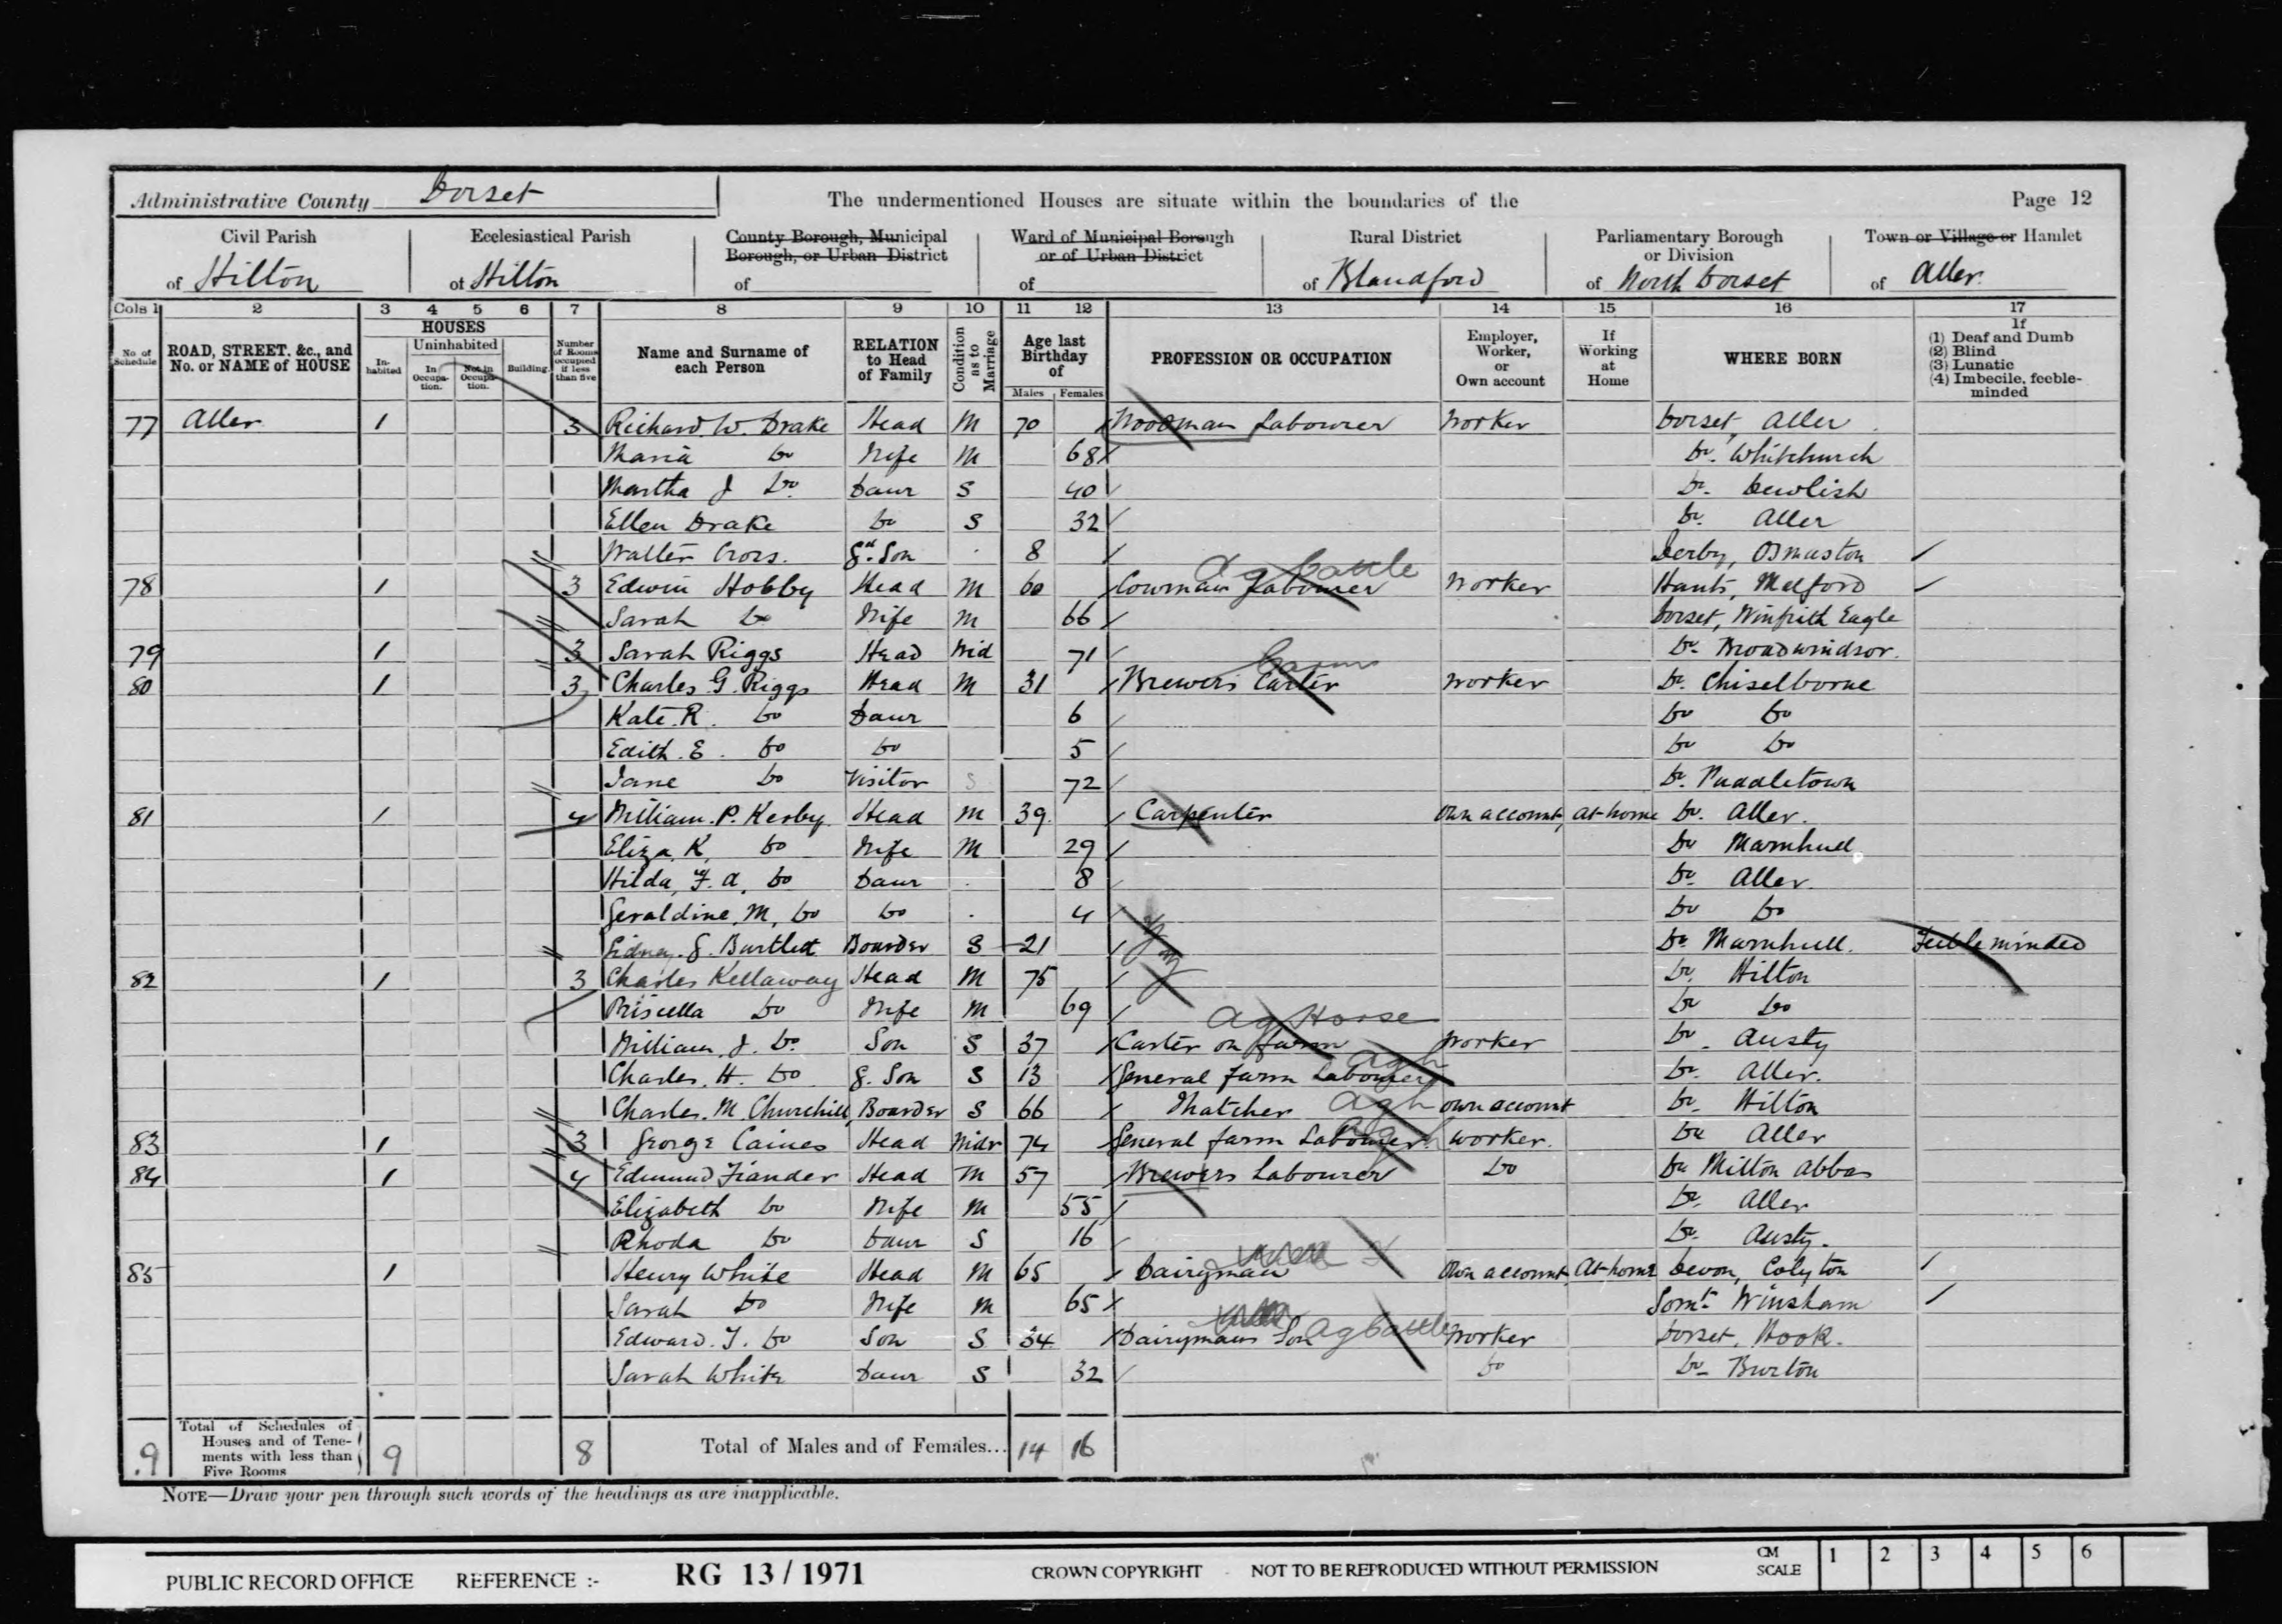 Administrative County Dorset The undermentioned Houses are situate within the boundaries of the Page 12
Civil Parish Ecclesiastical Parish County Borough, Municipal Ward of Municipal Borough Rural District Parliamentary Borough Town or Village or Hamlet
Borough, or Urban District or of Urban District or Division
of Hilton of Hilton of of of Blandford of North Dorset of Aller.
Cols 1 2 3 4 5 6 7 8 9 10 11 12 13 14 15 16 17
No. of Schedule ROAD, STREET, &c., and No. or NAME of HOUSE HOUSES In-habited Uninhabited In Occupa-tion. Not in Occupa-tion. Building. Number of Rooms occupied if less than five Name and Surname of each Person RELATION to Head of Family Condition as to Marriage Age last Birthday of Males Females PROFESSION OR OCCUPATION Employer, Worker, or Own account If Working at Home WHERE BORN If (1) Deaf and Dumb (2) Blind (3) Lunatic (4) Imbecile, feeble-minded
77 Aller 1 3 Richard. W. Drake Head M 70 Woodman Labourer Worker Dorset, Aller
Maria Do Wife M 68 Do. Whitchurch
Martha J Do. Daur S 40 Do. Dewlish
Ellen Drake Do S 32 Do. Aller
Walter Crocs. Gd. Son 8 Derby, Osmaston
Ag Cattle
78 1 3 Edwin Hobby Head M 60 Cowman Labourer Worker Hants, Melford
Sarah Do Wife M 66 Dorset, Winfrith Eagle
79 1 3 Sarah Riggs Head Wid 71 Do. Broadwindsor.
80 1 3 Charles. G. Riggs Head M 31 Brewers Carter Worker Do. Chiselborne
Kate. R. Do Daur 6 Do Do
Edith. E. Do Do 5 Do Do
Jane Do Visitor S 72 Do. Puddletown
81 1 4 William. P. Kerby Head M 39. Carpenter Own account, At home Do. Aller.
Eliza, K, Do Wife M 29 Do Marnhull
Hilda, F. A, Do Daur 8 Do. Aller.
Geraldine, M, Do Do 4 Do Do
Sidney. G. Bartlett Boarder S 21 Do. Marnhull. Feeble minded
82 1 3 Charles Kellaway Head M 75 Do. Hilton
Priscella Do Wife M 69 Do Do
Ag Horse
William. J. Do. Son S 37 Carter on farm Worker Do. Ansty
Charles. H. Do G. Son S 13 General Farm Labourer Agh Do. Aller.
Charles. M. Churchill, Boarder S 66 Thatcher Agh Own account Do. Hilton
83 1 3 George Caines Head Widr 74 General farm Labourer. Agh Worker. Do Aller
84 1 4 Edmund Fiander Head M 57 Brewers Labourer Do Do Milton Abbas
Elizabeth Do Wife M 55 Do. Aller
Rhoda Do Daur S 16 Do. Ansty.
85 1 Henry White Head M 65 Dairyman Own account, At home Devon, Colyton
Sarah Do Wife M 65 Somt. Winsham
Edward. J. Do Son S 34 Dairymans Son Ag Cattle Worker Dorset, Hook.
Sarah White Daur S 32 Do Do. Burton
9 Total of Schedules of Houses and of Tene-ments with less than Five Rooms 9 8 Total of Males and of Females... 14 16
NOTE—Draw your pen through such words of the headings as are inapplicable.
PUBLIC RECORD OFFICE REFERENCE :- RG 13 / 1971 CROWN COPYRIGHT NOT TO BE REPRODUCED WITHOUT PERMISSION CM SCALE 1 2 3 4 5 6